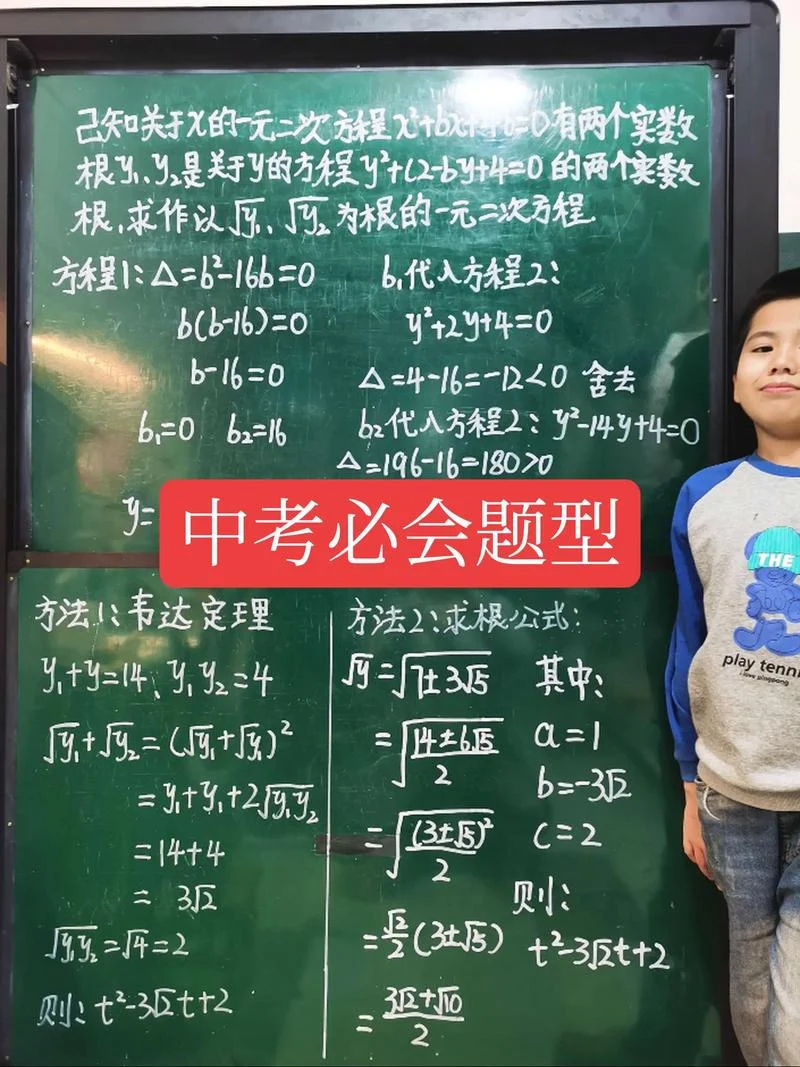 已知关于x的一元二次方程x²+bx+4b=0有两个实数
根y₁、y₂是关于y的方程y²+(2-by+4=0的两个实数
根,求作以√y₁、√y₂为根的一元二次方程.
方程1:△=b²-16b=0
b(b-16)=0
b-16=0
b₁=0 b₂=16
b₁代入方程2:
y²+2y+4=0
△=4-16=-12<0 舍去
b₂代入方程2:y²-14y+4=0
△=196-16=180>0
y=
中考必会题型
方法1:韦达定理
y₁+y=14、y₁y₂=4
√y₁+√y₂=(√y₁+√y₁)²
=y₁+y₁+2√y₁y₂
=14+4
= 3√2
√y₁y₂=√4=2
则:t²-3√2t+2
方法2:求根公式:
√y=√(7±3√5)
=√((14±6√5)/2)
=√((3±√5)²/2)
=√2/2(3±√5)
=(3√2+√10)/2
其中:
a=1
b=-3√2
c=2
则:
t²-3√2t+2
THE
play tenni
i love pingpong